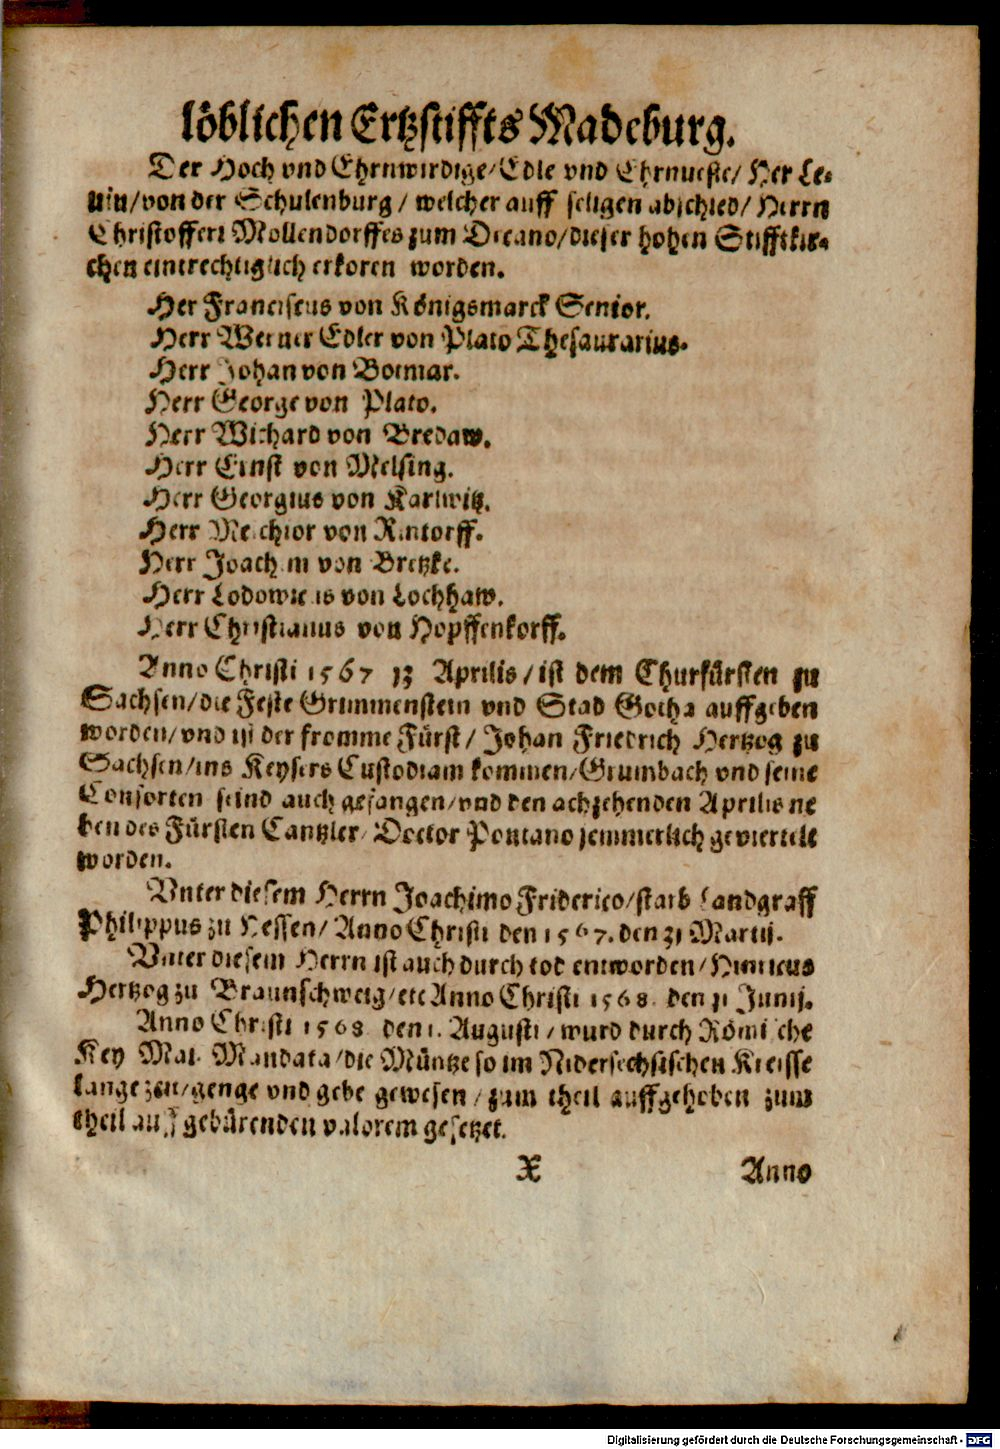 löblichen Ertzstiffts Madeburg.
Der Hoch vnd Ehrnwirdige/Edle vnd Ehrnueste/Her Le-
uin/von der Schulenburg/welcher auff seligen abschied/Herrn
Christoffert Mollendorffes zum Decano/dieser hohen Stifftkir-
chen eintrechtiglich erkoren worden.
Her Franciscus von Königsmarck Senior.
Herr Werner Edler von Plato Thesaurarius.
Herr Johan von Botmar.
Herr George von Plato.
Herr Wichard von Bredaw.
Herr Ernst von Melsing.
Herr Georgius von Karlwitz.
Herr Melchior von Rintorff.
Herr Joachim von Bretzke.
Herr Lodowicus von Lochhaw.
Herr Christianus von Hopffenkorff.
Anno Christi 1567 13 Aprilis/ist dem Churfürsten zu
Sachsen/die Feste Grimmenstein vnd Stad Gotha auffgeben
worden/vnd ist der fromme Fürst/Johan Friedrich Hertzog zu
Sachsen/ins Keysers Custodiam kommen/Grumbach vnd seine
Consorten seind auch gefangen/vnd den achzehenden Aprilis ne
ben des Fürsten Cantzler/Doctor Pontano jemmerlich gevierteilt
worden.
Vnter diesem Herrn Joachimo Friderico/starb Landgraff
Philippus zu Hessen/Anno Christi den 1567. den 31 Martij.
Vnter diesem Herrn ist auch durch tod entworden/Hinricus
Hertzog zu Braunschweig/etc Anno Christi 1568. den 11 Junij.
Anno Christi 1568 den 1. Augusti/wurd durch Römische
Key Mai. Mandata/die Müntze so im Nidersechsischen Kreisse
lange zeit/genge vnd gebe gewesen/zum theil auffgehoben zum
theil auff gebürenden valorem gesetzet.
X Anno
Digitalisierung gefördert durch die Deutsche Forschungsgemeinschaft - DFG